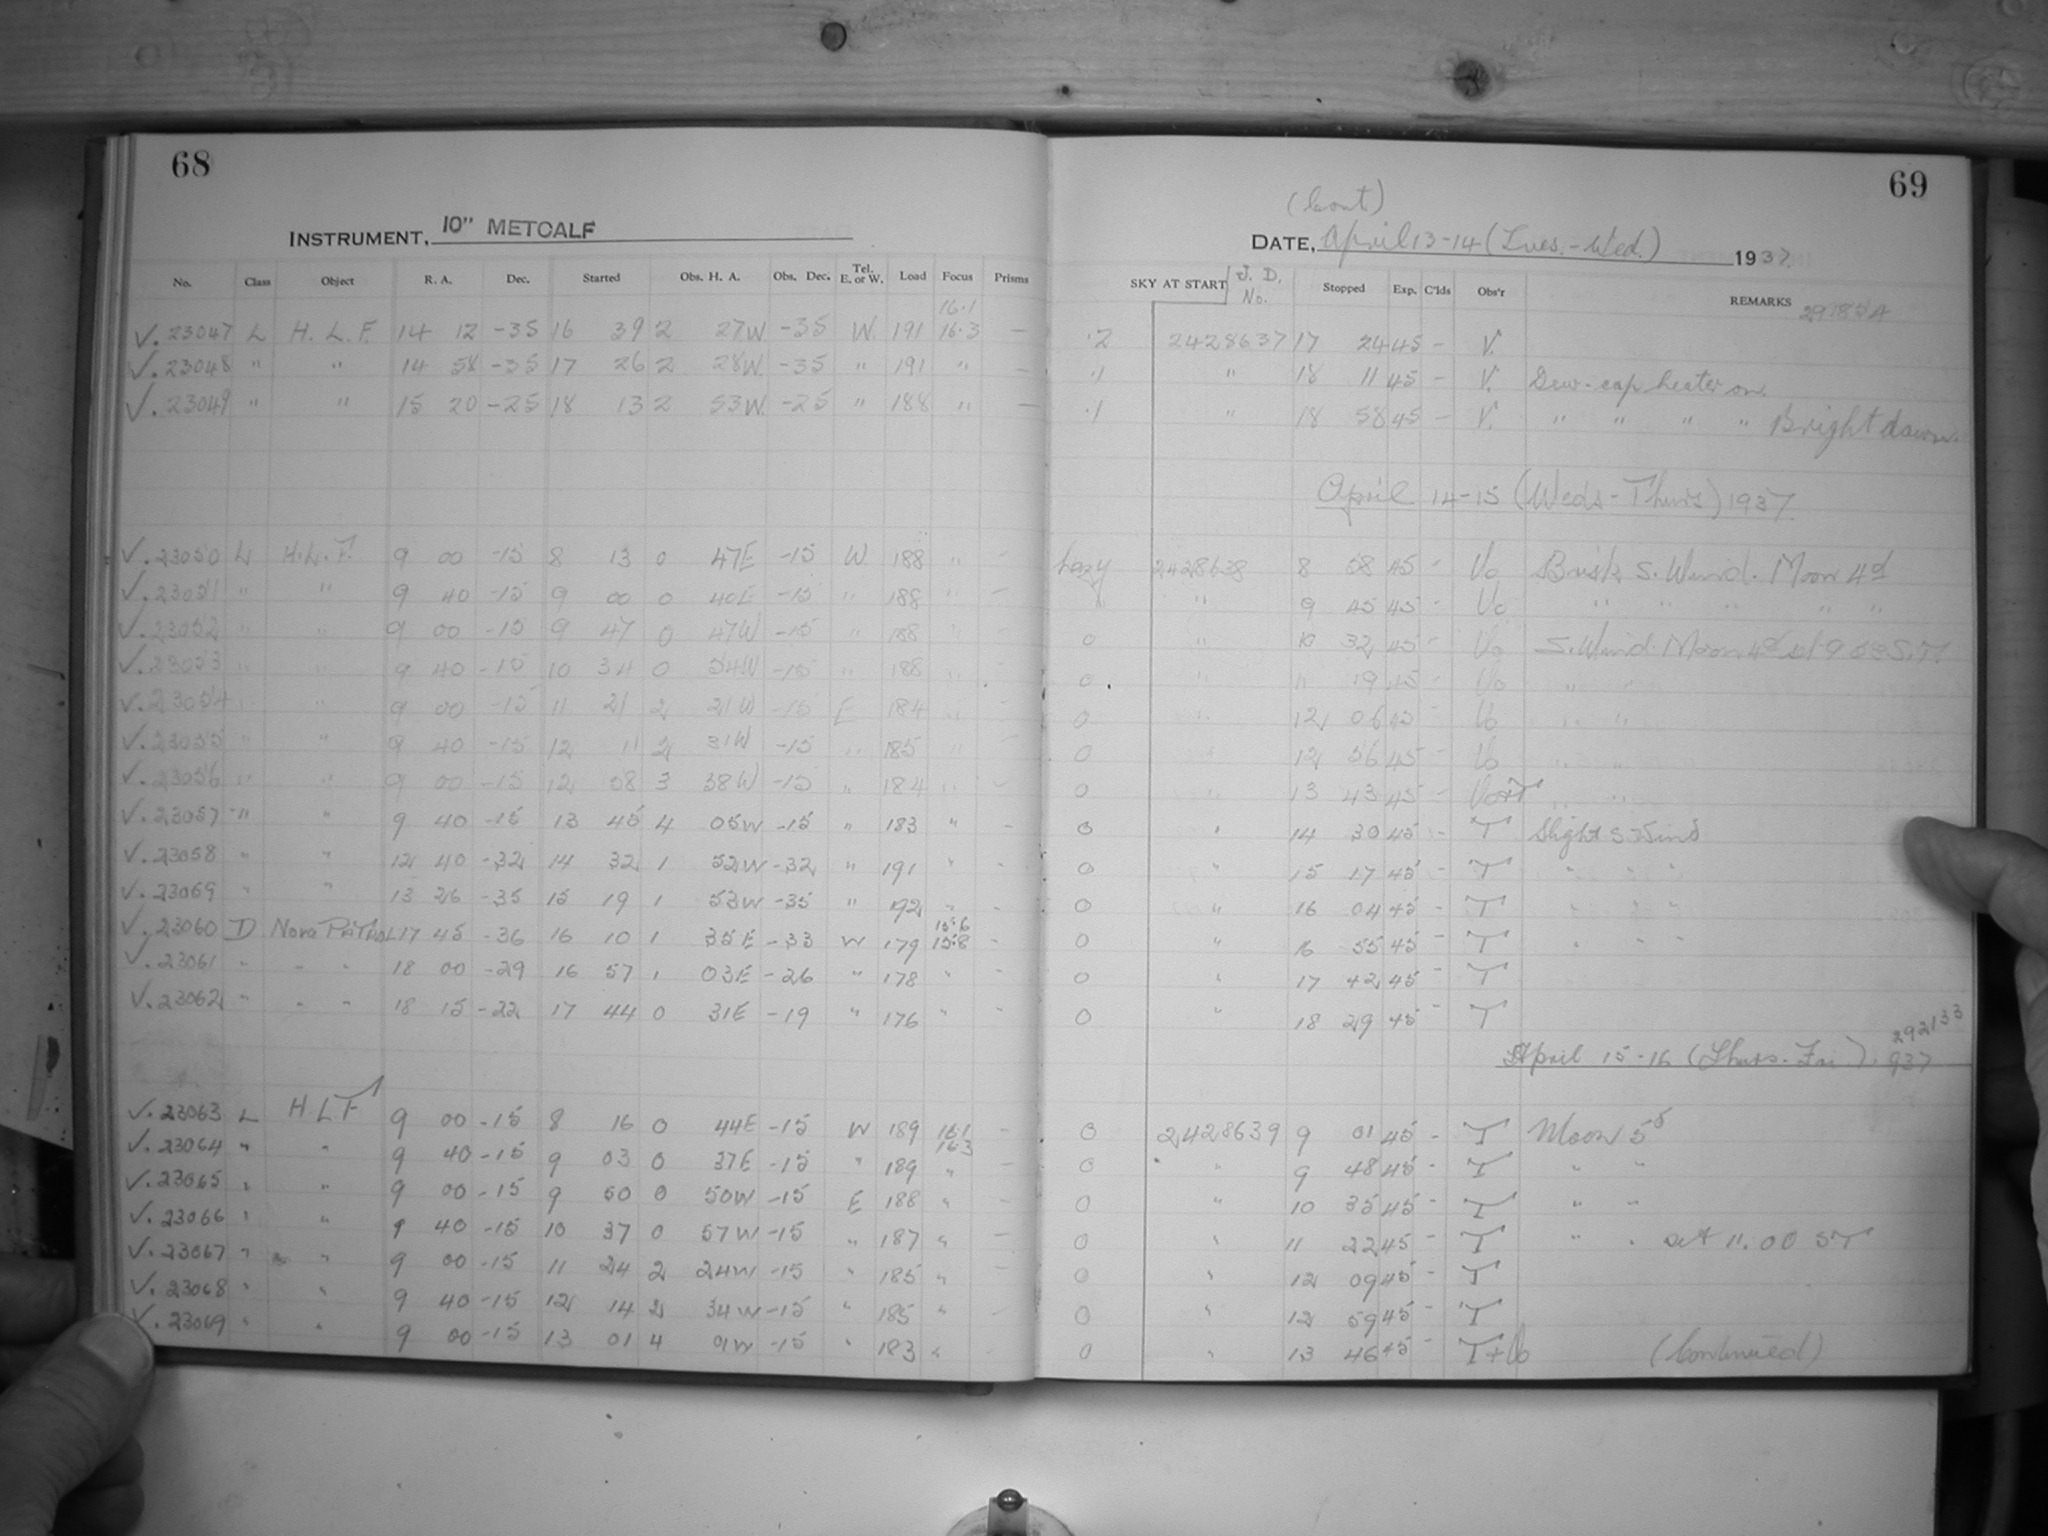 68
INSTRUMENT, 10" METCALF
No. Class Object R. A. Dec. Started Obs. H. A. Obs. Dec. Tel. E. or W. Load Focus Prisms
16.1
V. 23047 L H. L. F. 14 12 -35 16 39 2 27W -35 W. 191 16.3 —
V. 23048 " " 14 58 -35 17 26 2 28W. -35 " 191 " —
V. 23049 " " 15 20 -25 18 13 2 53W. -25 " 188 " —
V. 23050 L H.L.F. 9 00 -15 8 13 0 47E -15 W. 188 " -
V. 23051 " " 9 40 -15 9 00 0 40E -15 " 188 " -
V. 23052 " " 9 00 -15 9 47 0 47W -15 " 188 " -
V. 23053 " " 9 40 -15 10 34 0 54W -15 " 188 " -
V. 23054 " " 9 00 -15 11 21 2 21W -15 E 184 " -
V. 23055 " " 9 40 -15 12 11 2 31W -15 " 185 " -
V. 23056 " " 9 00 -15 12 58 3 38W -15 " 184 " -
V. 23057 " " 9 40 -15 13 45 4 05W -15 " 183 " -
V. 23058 " " 12 40 -32 14 32 1 52W -32 " 191 " -
V. 23059 " " 13 26 -35 15 19 1 53W -35 " 192 " -
15.6
V. 23060 D Nova 17 45 -36 16 10 1 35E -33 W 179 15.8 -
V. 23061 " " " 18 00 -29 16 57 1 03E -26 " 178 " -
V. 23062 " " " 18 15 -22 17 44 0 31E -19 " 176 " -
V. 23063 L H L F 9 00 -15 8 16 0 44E -15 W 189 16.1 -
16.3
V. 23064 " " 9 40 -15 9 03 0 37E -15 " 189 " -
V. 23065 " " 9 00 -15 9 50 0 50W -15 E 188 " -
V. 23066 " " 9 40 -15 10 37 0 57W -15 " 187 " -
V. 23067 " " 9 00 -15 11 24 2 24W -15 " 185 " -
V. 23068 " " 9 40 -15 12 14 2 34W -15 " 185 " -
V. 23069 " " 9 00 -15 13 01 4 W -15 " 183 "
69
(Cont)
DATE, April 13-14 (Tues. - Wed.) 1937.
SKY AT START J. D. No. Stopped Exp. C'lds Obs'r REMARKS
.2 2428637 17 24 45 - V.
.1 " 18 11 45 - V. Dew-cap heater on.
.1 " 18 58 45 - V. " " " " Bright dawn.
April 14-15 (Weds - Thurs) 1937
hazy 2428638 8 58 45 - Vo Brisk S. Wind. Moon 4d
" " 9 45 45 - Vo " " " " "
0 " 10 32 45 - Vo S. Wind. Moon 4d set 9
0 " 11 19 45 - Vo " "
0 " 12 06 45 - Vo " "
0 " 12 56 45 - Vo " "
0 " 13 43 45 - Vo+T " "
0 " 14 30 45 - T Slight S. Wind
0 " 15 17 45 - T " " "
0 " 16 04 45 - T " " "
0 " 16 55 45 - T " " "
0 " 17 42 45 - T
0 " 18 29 45 - T
292133
April 15-16 (Thurs - Fri.). 937
0 2428639 9 01 45 - T Moon 5d
0 " 9 48 45 - T " "
0 " 10 35 45 - T " "
0 " 11 22 45 - T " " set 11.00 ST
0 " 12 09 45 - T
0 " 12 59 45 - T
0 " 13 46 45 - T+Vo (Continued)